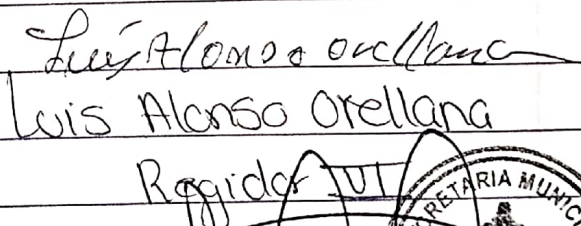 Luis Alonso Orellana
Luis Alonso Orellana
Regidor VI
RETARIA MUNIC